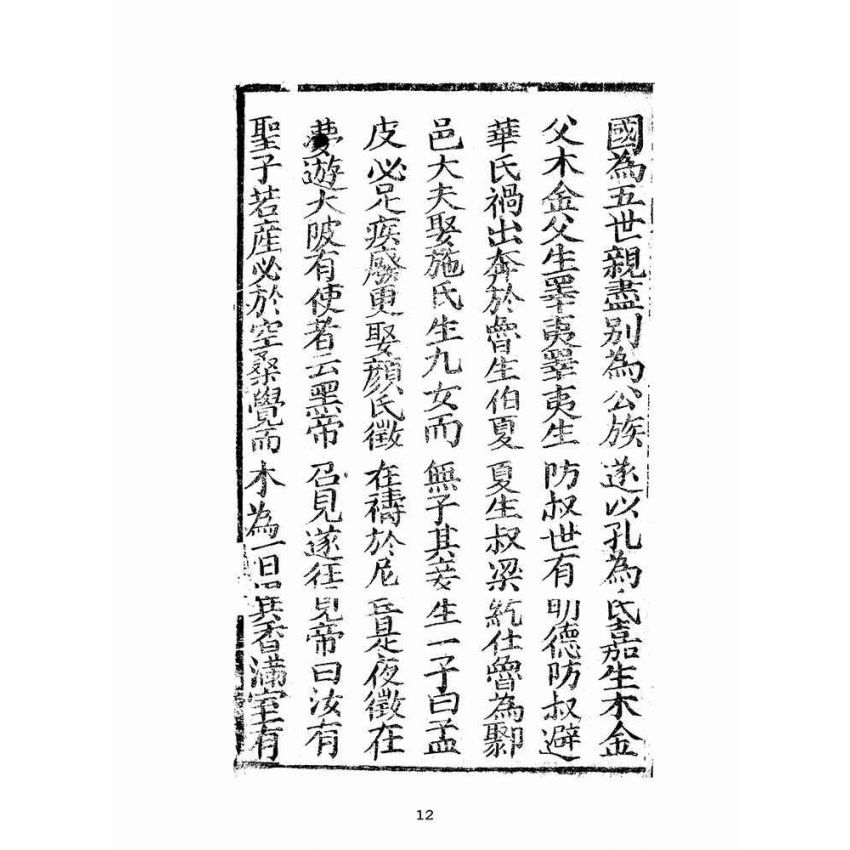 國為五世親盡別為公族遂以孔為氏嘉生木金
父木金父生睪夷睪夷生防叔世有明德防叔避
華氏禍出奔於魯生伯夏夏生叔梁紇仕魯為郰
邑大夫娶施氏生九女而無子其妾生一子曰孟
皮必足疾廢更娶顏氏徵在禱於尼丘是夜徵在
夢遊大陂有使者云黑帝召見遂往見帝曰汝有
聖子若產必於空桑覺而木為一日異香滿室有
12